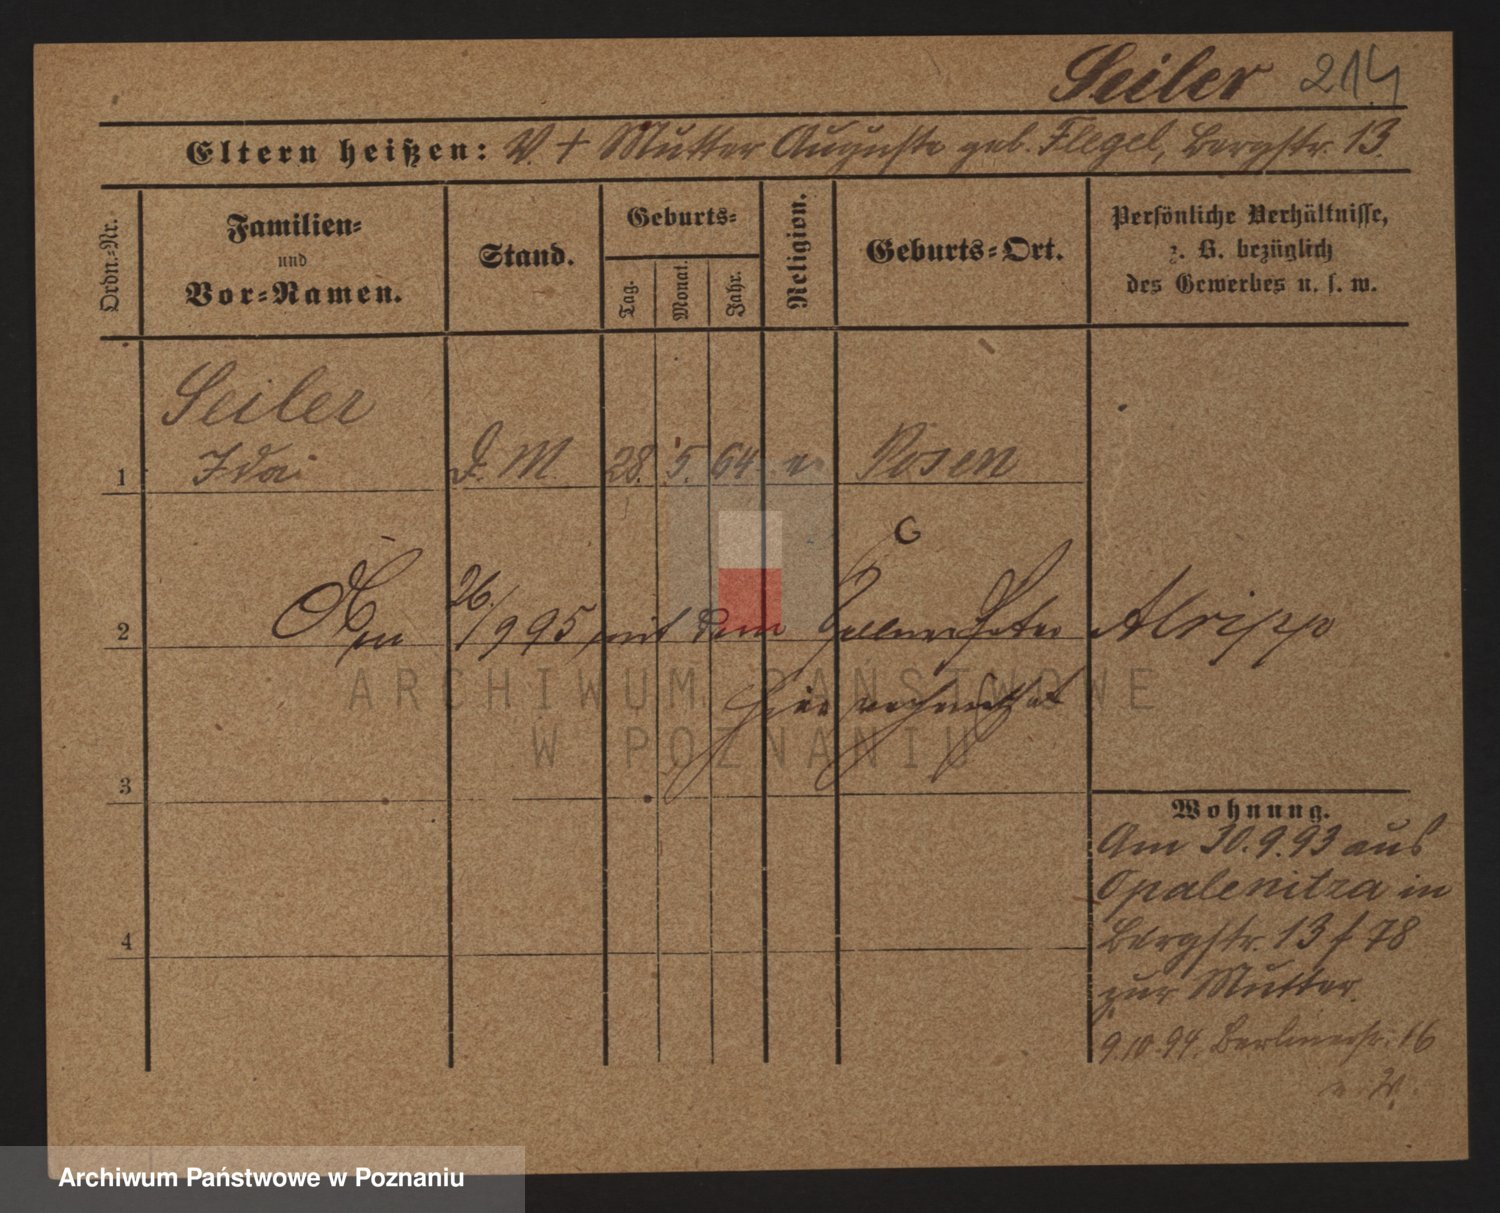 Seiler 214
Eltern heißen: V. + Mutter Auguste geb. Flegel, Bergstr. 13.
Ordn.-Nr.
Familien-
und
Vor-Namen.
Stand.
Geburts-
Tag.
Monat.
Jahr.
Religion.
Geburts-Ort.
Persönliche Verhältnisse,
z. B. bezüglich
des Gewerbes u. s. w.
Seiler
1 Ida D. M. 28. 5. 64 Posen
2 26/9 95 mit dem Kellner Peter Alripp
hier verheirathet
3
Wohnung.
Am 30.9.93 aus
Opalenitza in
Bergstr. 13 f 78
zur Mutter.
4
9.10.94. Berlinerstr. 16
ARCHIWUM PAŃSTWOWE
W POZNANIU
Archiwum Państwowe w Poznaniu